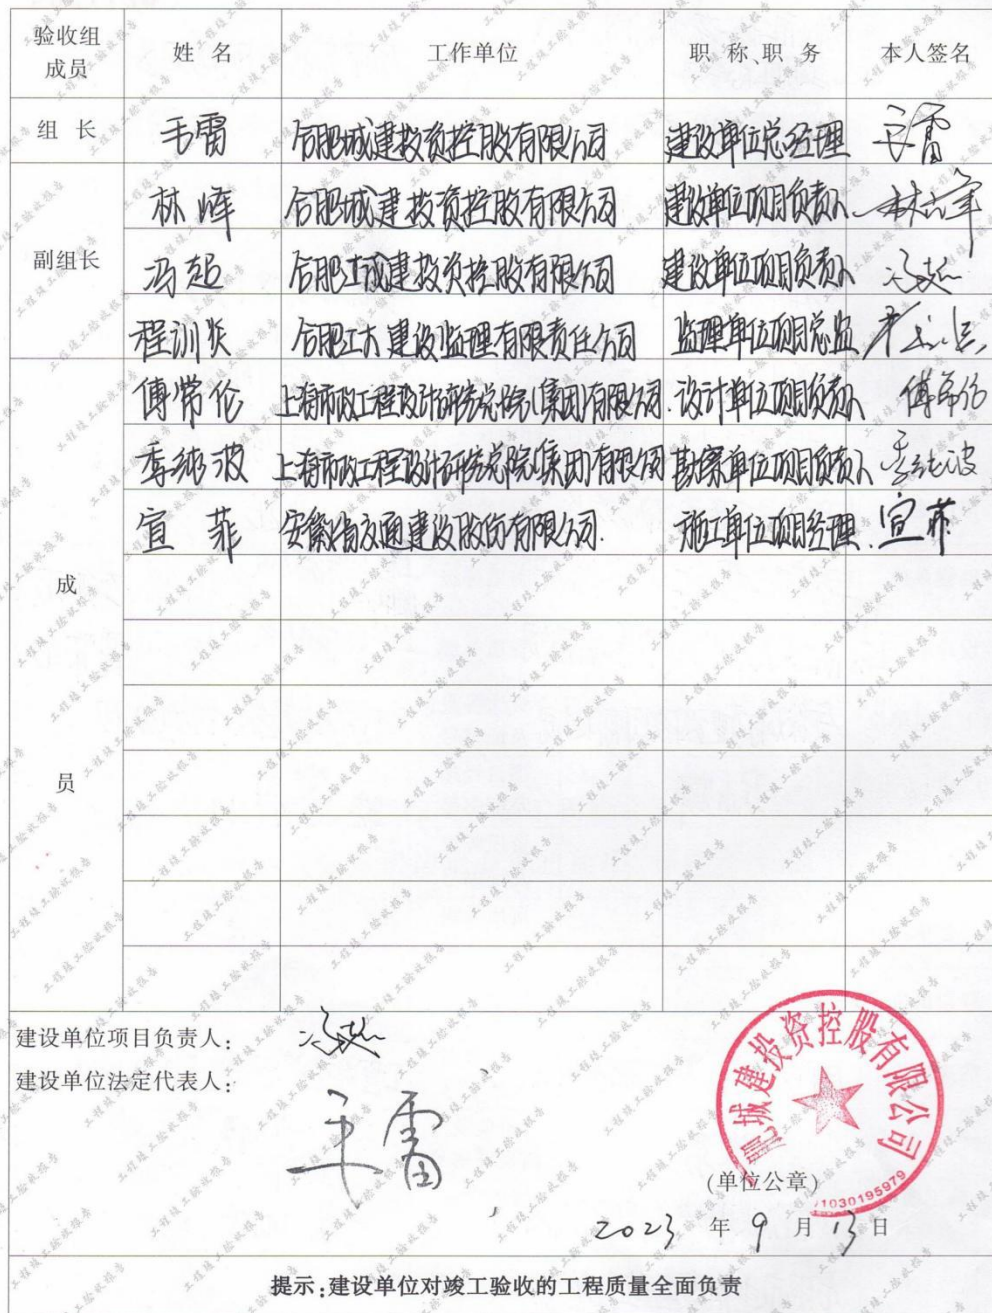 验收组成员 姓名 工作单位 职称、职务 本人签名
组长 毛雷 合肥城建投资控股有限公司 建设单位总经理 毛雷
副组长 林峰 合肥城建投资控股有限公司 建设单位项目负责人
冯超 合肥城建投资控股有限公司 建设单位项目负责人 冯超
程训炎 合肥工大建设监理有限责任公司 监理单位项目总监
成员 傅常伦 上海市政工程设计研究总院(集团)有限公司. 设计单位项目负责人 傅常伦
季纯波 上海市政工程设计研究总院(集团)有限公司 勘察单位项目负责人 季纯波
宣菲 安徽省交通建设股份有限公司. 施工单位项目经理. 宣菲
建设单位项目负责人: 冯超
建设单位法定代表人: 毛雷
肥城建投资控股有限公司
1030195979
(单位公章)
2023年9月13日
提示:建设单位对竣工验收的工程质量全面负责
工程竣工验收报告